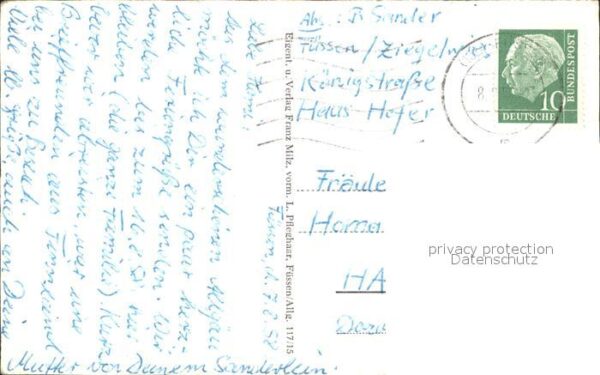 Abs.: B. Sander
Füssen/Ziegelwies
Königstraße
Haus Hofer
8.
10
DEUTSCHE
BUNDESPOST
Fräule
Hanna
HA
Dazu
privacy protection
Datenschutz
Eigent. u. Verlag Franz Milz, vorm. L. Pfleghaar, Füssen/Allg. 117/15
Füssen, d. 7.8.58
Aus dem wunderschönen Allgäu
möchte ich Dir ein paar herz-
liche Feriengrüße senden. Wir
werden bis zum 16.8. hier
bleiben (die ganze Familie). Kurz
bevor wir abreisten, war uns
Brieffreundin aus Finnland
bei uns zu Besuch.
Viele l. Grüße, auch an Deine
Mutter von Deinem Sanderlein.